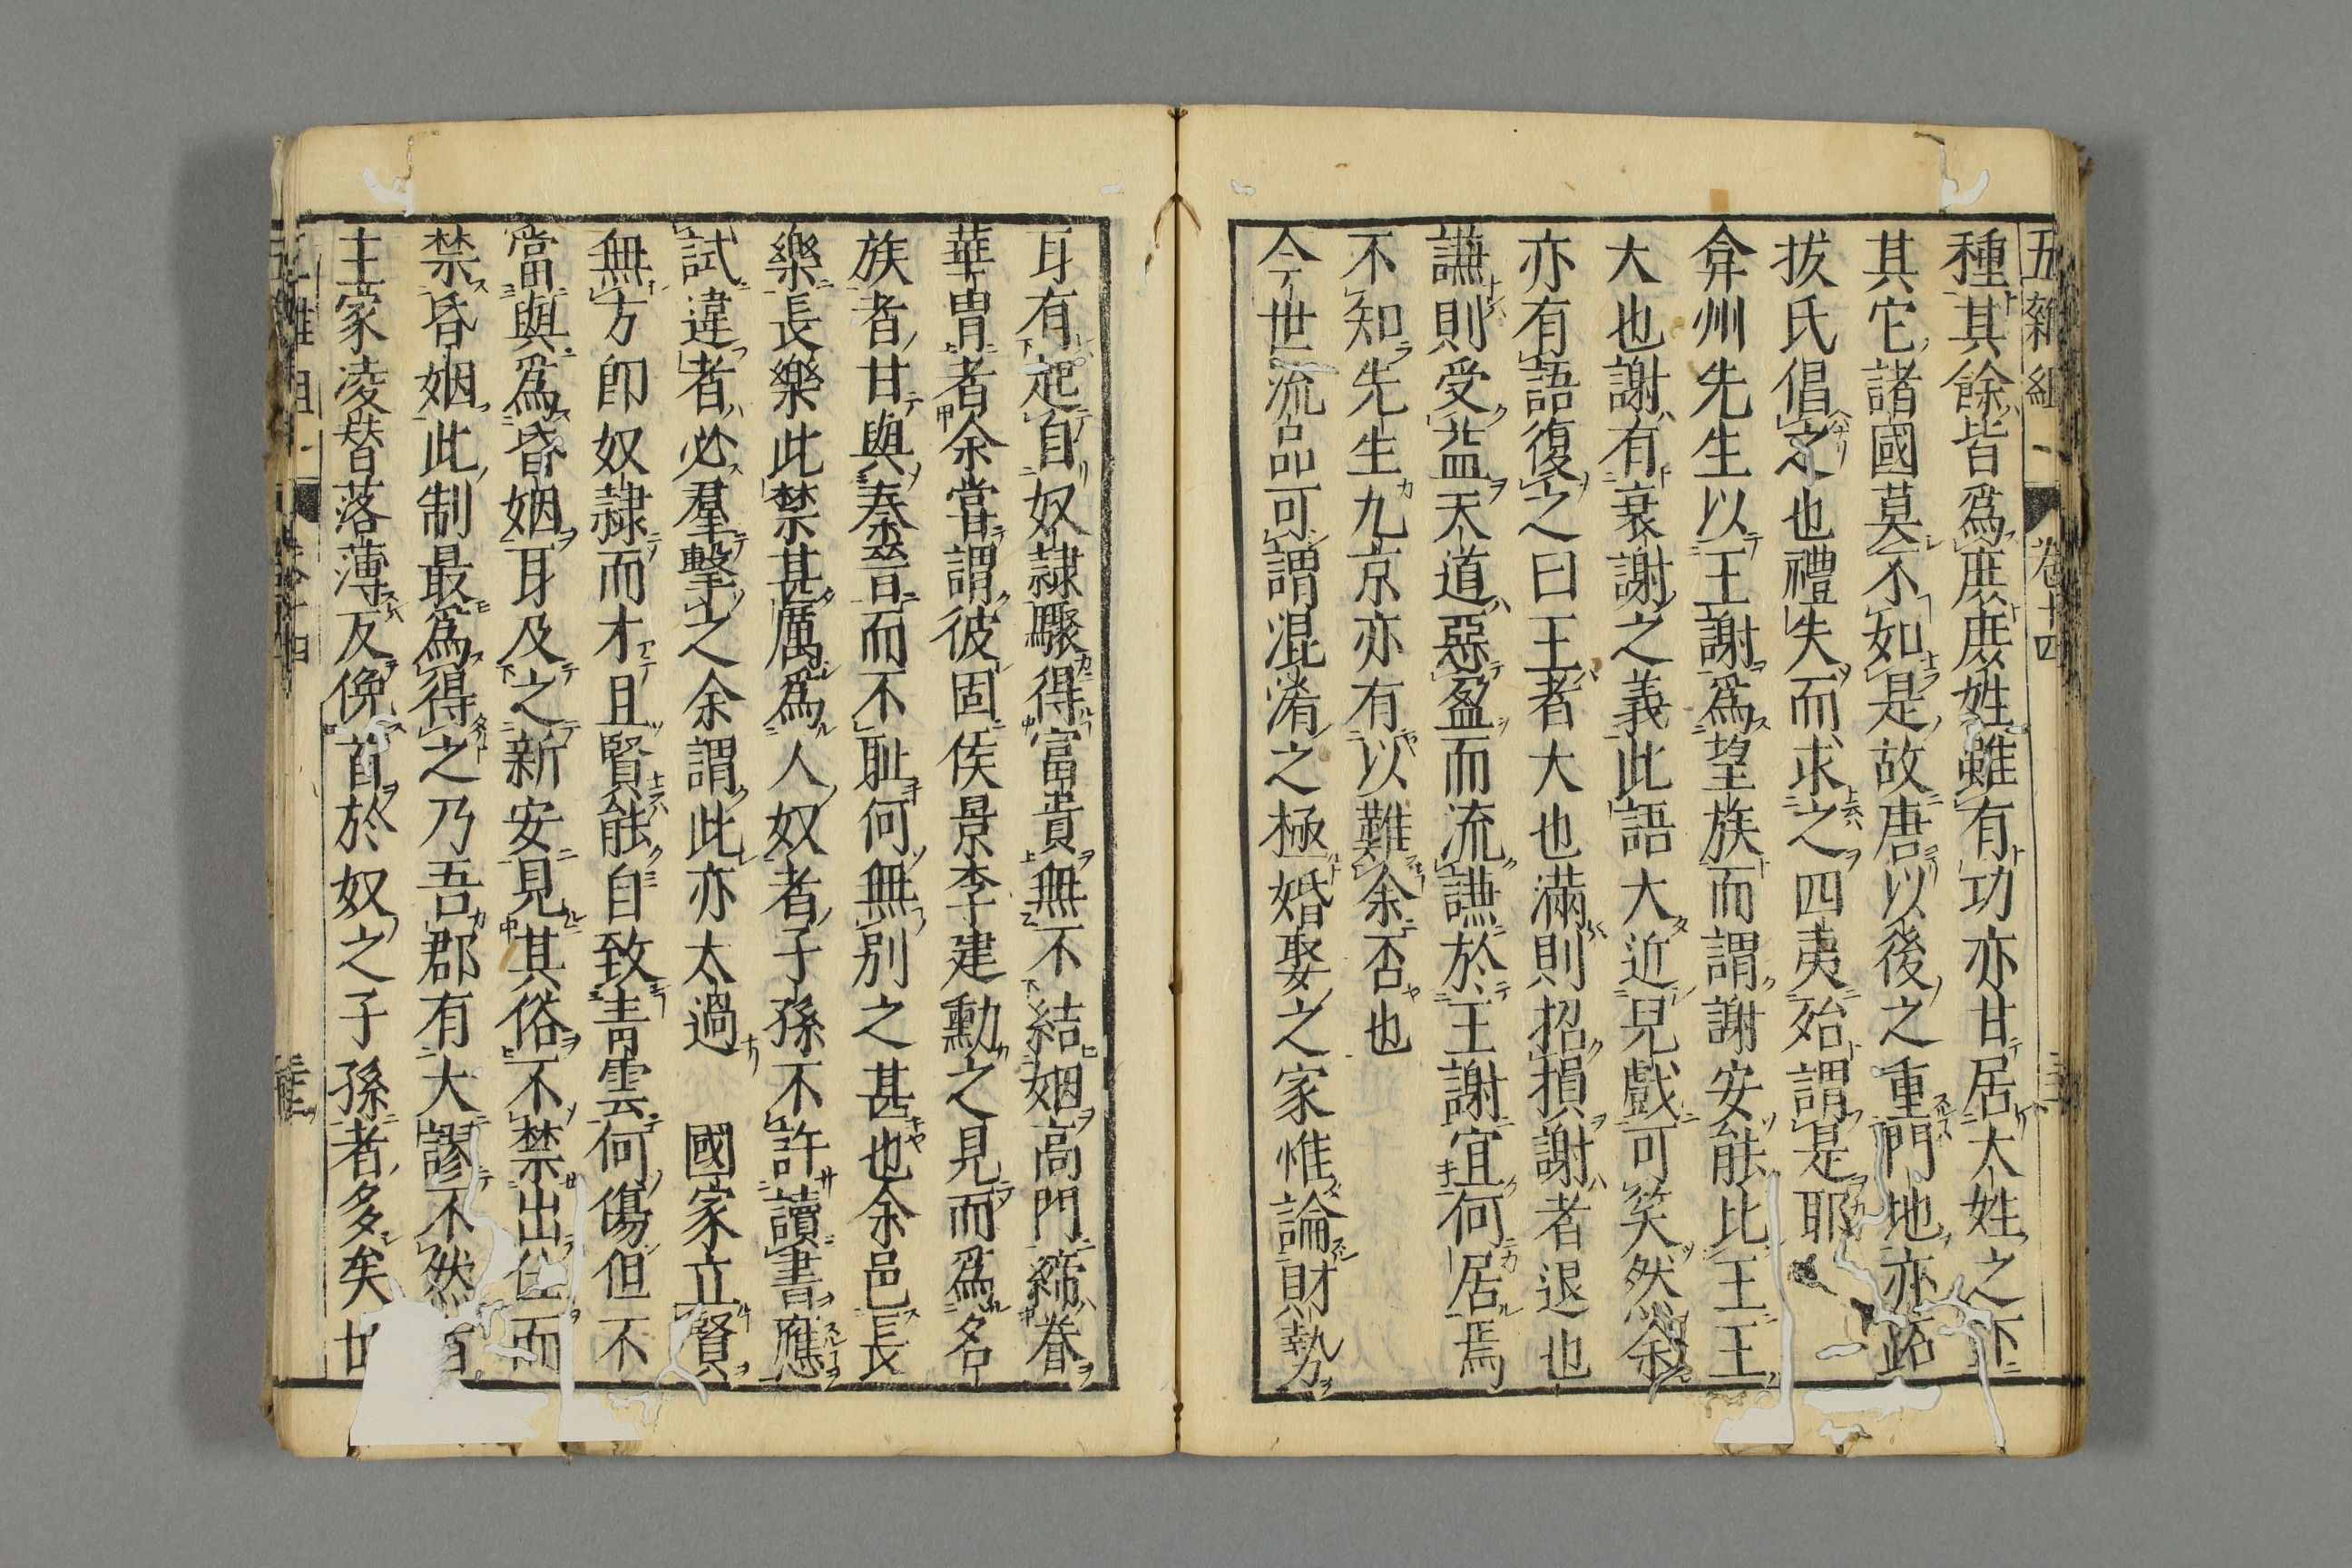 五雜組
卷十四
種其餘皆為庶庶姓雖有功亦甘居大姓之下
其它諸國莫不如是故唐以後之重門地亦路
拔氏倡之也禮失而求之四夷殆謂是耶
弇州先生以王謝為望族而謂謝安能比王王
大也謝有衰謝之義此語大近兒戲可笑然余
亦有語復之曰王者大也滿則招損謝者退也
謙則受益天道惡盈而流謙於王謝宜何居焉
不知先生九京亦有以難余否也
今世流品可謂混淆之極婚娶之家惟論財勢
耳有起自奴隷驟得富貴無不結姻高門締眷
華冑者余嘗謂彼固侯景李建勳之見而為名
族者甘與秦晉而不耻何無別之甚也余邑長
樂長樂此禁甚厲為人奴者子孫不許讀書應
試違者必羣擊之余謂此亦太過　國家立賢
無方卽奴隷而才且賢能自致青雲何傷但不
當與為昏姻耳及之新安見其俗不禁出仕而
禁昏姻此制最為得之乃吾郡有大謬不然者
主家凌替落薄反俛首於奴之子孫者多矣世